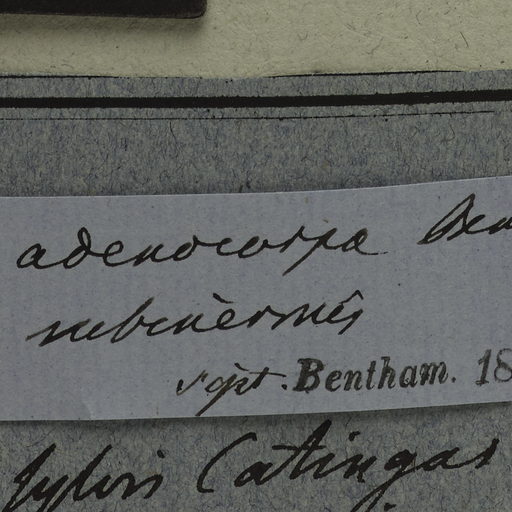 adenocarpa Ben
subinermis
sept. Bentham. 18
sylvis Catingas